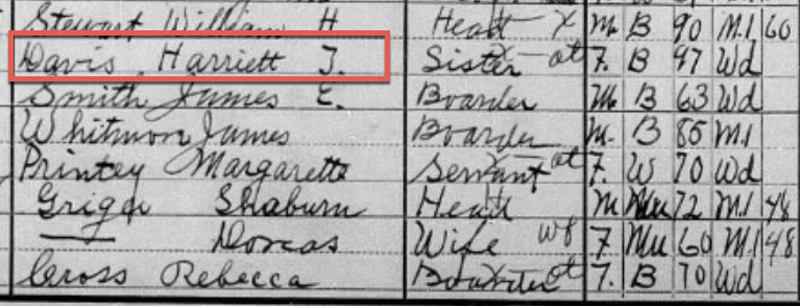 Stewart William H. Head X M. B 90 M.1 60
Davis Harriett T. Sister ot F. B 97 Wd
Smith James E. Boarder M. B 63 Wd
Whitmon James Boarder M. B 85 M.1
Printey Margarette Servant ot F. W 70 Wd
Grigga Shaburn Head M Mu 72 M.1 48
—— Dorcas Wife W8 F Mu 60 M.1 48
Cross Rebecca Boarder ot F. B 70 Wd